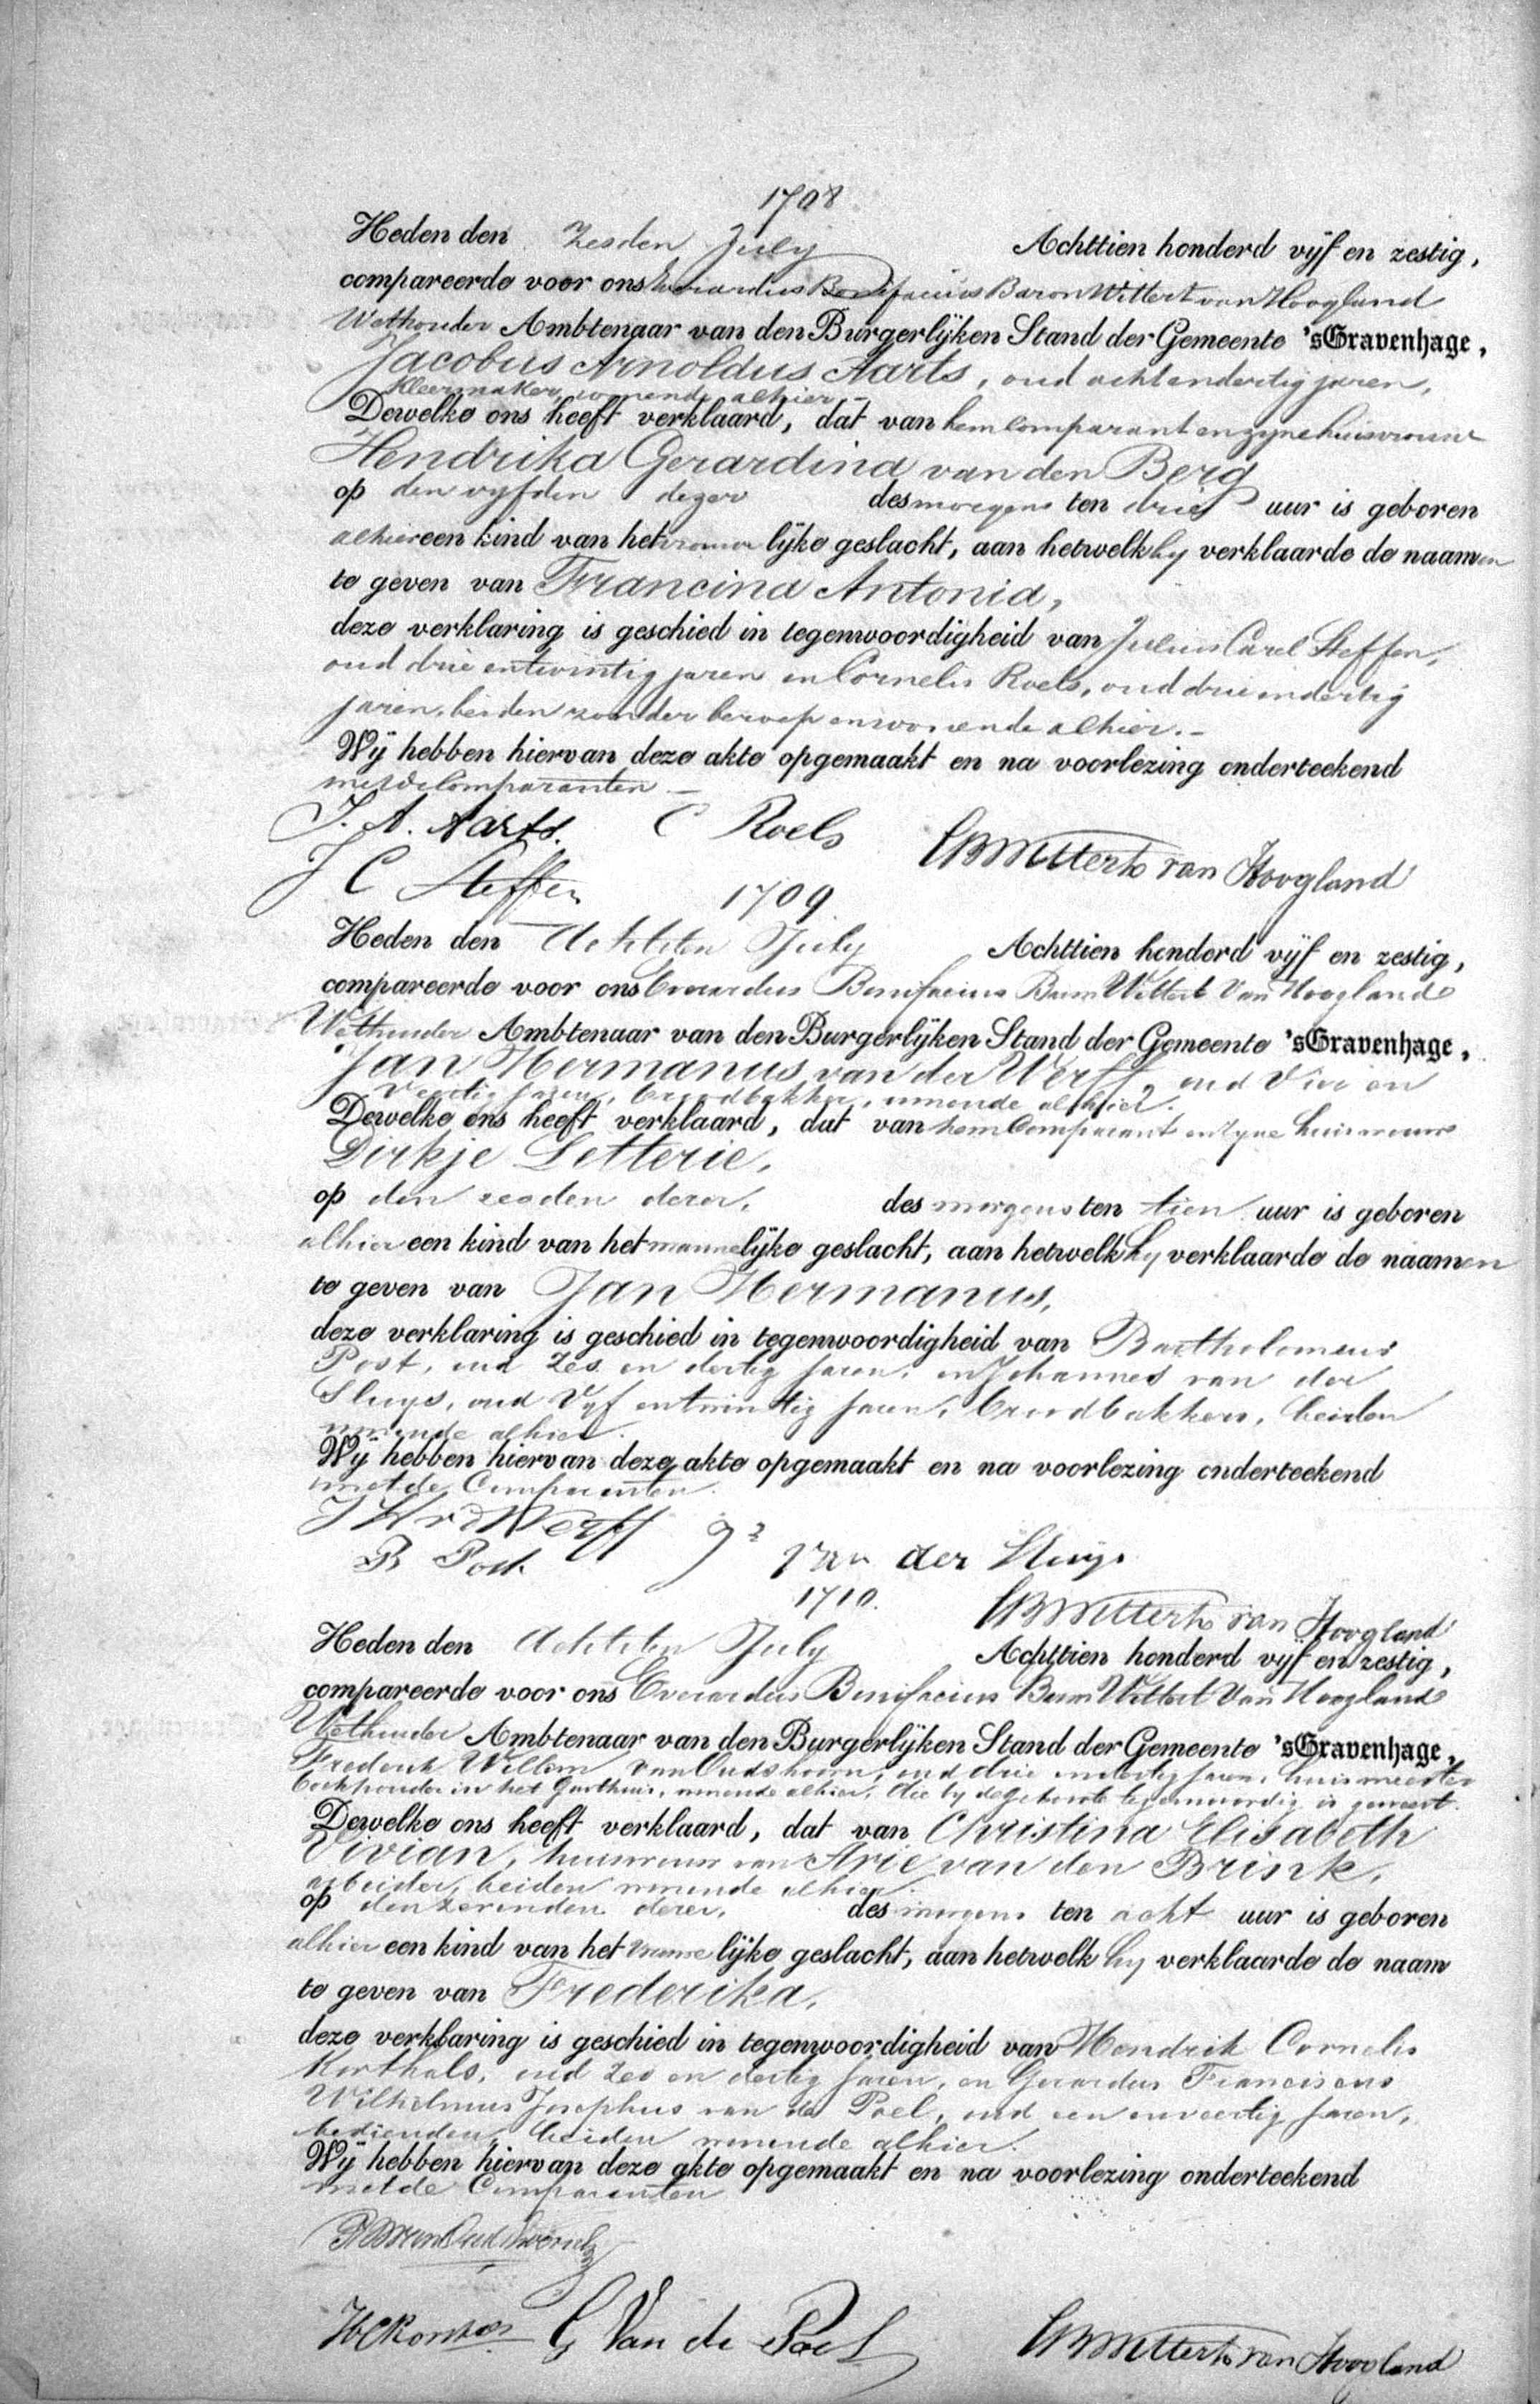 1708
Heden den Zesden July Achttien honderd vijf en zestig,
compareerde voor ons Everardus Bonifacius Baron Wittert van Hoogland
Wethouder Ambtenaar van den Burgerlijken Stand der Gemeente 'sGravenhage,
Jacobus Arnoldus Aarts, oud achtendertig jaren,
Kleermaker, wonende alhier –
Dewelke ons heeft verklaard, dat van hem Comparant en zyne huisvrouw
Hendrika Gerardina van den Berg
op den vyfden dezer des morgens ten drie uur is geboren
alhier een kind van het vrouwelijke geslacht, aan hetwelk hy verklaarde de naamen
te geven van Francina Antonia,
deze verklaring is geschied in tegenwoordigheid van Julius Carel Steffen,
oud drie entwintig jaren en Cornelis Roels, oud drie endertig
jaren, beiden zonder beroep en wonende alhier. –
Wij hebben hiervan deze akte opgemaakt en na voorlezing onderteekend
met de Comparanten –
J. A. Aarts. C Roels
EBWittert van Hoogland
J C Steffen
1709
Heden den Achtsten July Achttien honderd vijf en zestig,
compareerde voor ons Everardus Bonifacius Baron Wittert Van Hoogland
Wethouder Ambtenaar van den Burgerlijken Stand der Gemeente 'sGravenhage,
Jan Hermanus van der Werff, oud Vier en
Veertig jaren, broodbakker, wonende alhier.
Dewelke ons heeft verklaard, dat van hem Comparant en zyne huisvrouw
Dirkje Letterie,
op den zesden dezer, des morgens ten tien uur is geboren
alhier een kind van het mannelijke geslacht, aan hetwelk hy verklaarde de naamen
te geven van Jan Hermanus,
deze verklaring is geschied in tegenwoordigheid van Bartholomeus
Post, oud zes en dertig jaren, en Johannes van der
Sluys, oud Vyf entwintig jaren, broodbakkers, beiden
wonende alhier.
Wij hebben hiervan deze akte opgemaakt en na voorlezing onderteekend
met de Comparanten.
J H v d Werff van der Sluys
B Post
1710.
EBWittert van Hoogland
Heden den Achtsten July Achttien honderd vijf en zestig,
compareerde voor ons Everardus Bonifacius Baron Wittert Van Hoogland
Wethouder Ambtenaar van den Burgerlijken Stand der Gemeente 'sGravenhage,
Frederik Willem Van Oudshoorn, oud drie endertig jaren, huismeester
boekhouder in het Gasthuis, wonende alhier, die by de geboorte tegenwoordig is geweest.
Dewelke ons heeft verklaard, dat van Christina Elisabeth
Vivian, huisvrouw van Arie van den Brink,
arbeider, beiden wonende alhier.
op den zevenden dezer, des morgens ten acht uur is geboren
alhier een kind van het vrouwelijke geslacht, aan hetwelk hy verklaarde de naam
te geven van Frederika,
deze verklaring is geschied in tegenwoordigheid van Hendrik Cornelis
Korthals, oud zes en dertig jaren, en Gerardus Franciscus
Wilhelmus Josephus van de Poel, oud een enveertig jaren,
bedienden, beiden wonende alhier.
Wij hebben hiervan deze akte opgemaakt en na voorlezing onderteekend
met de Comparanten
FWvan Oudshoorn
G Van de Poel
EBWittert van Hoogland